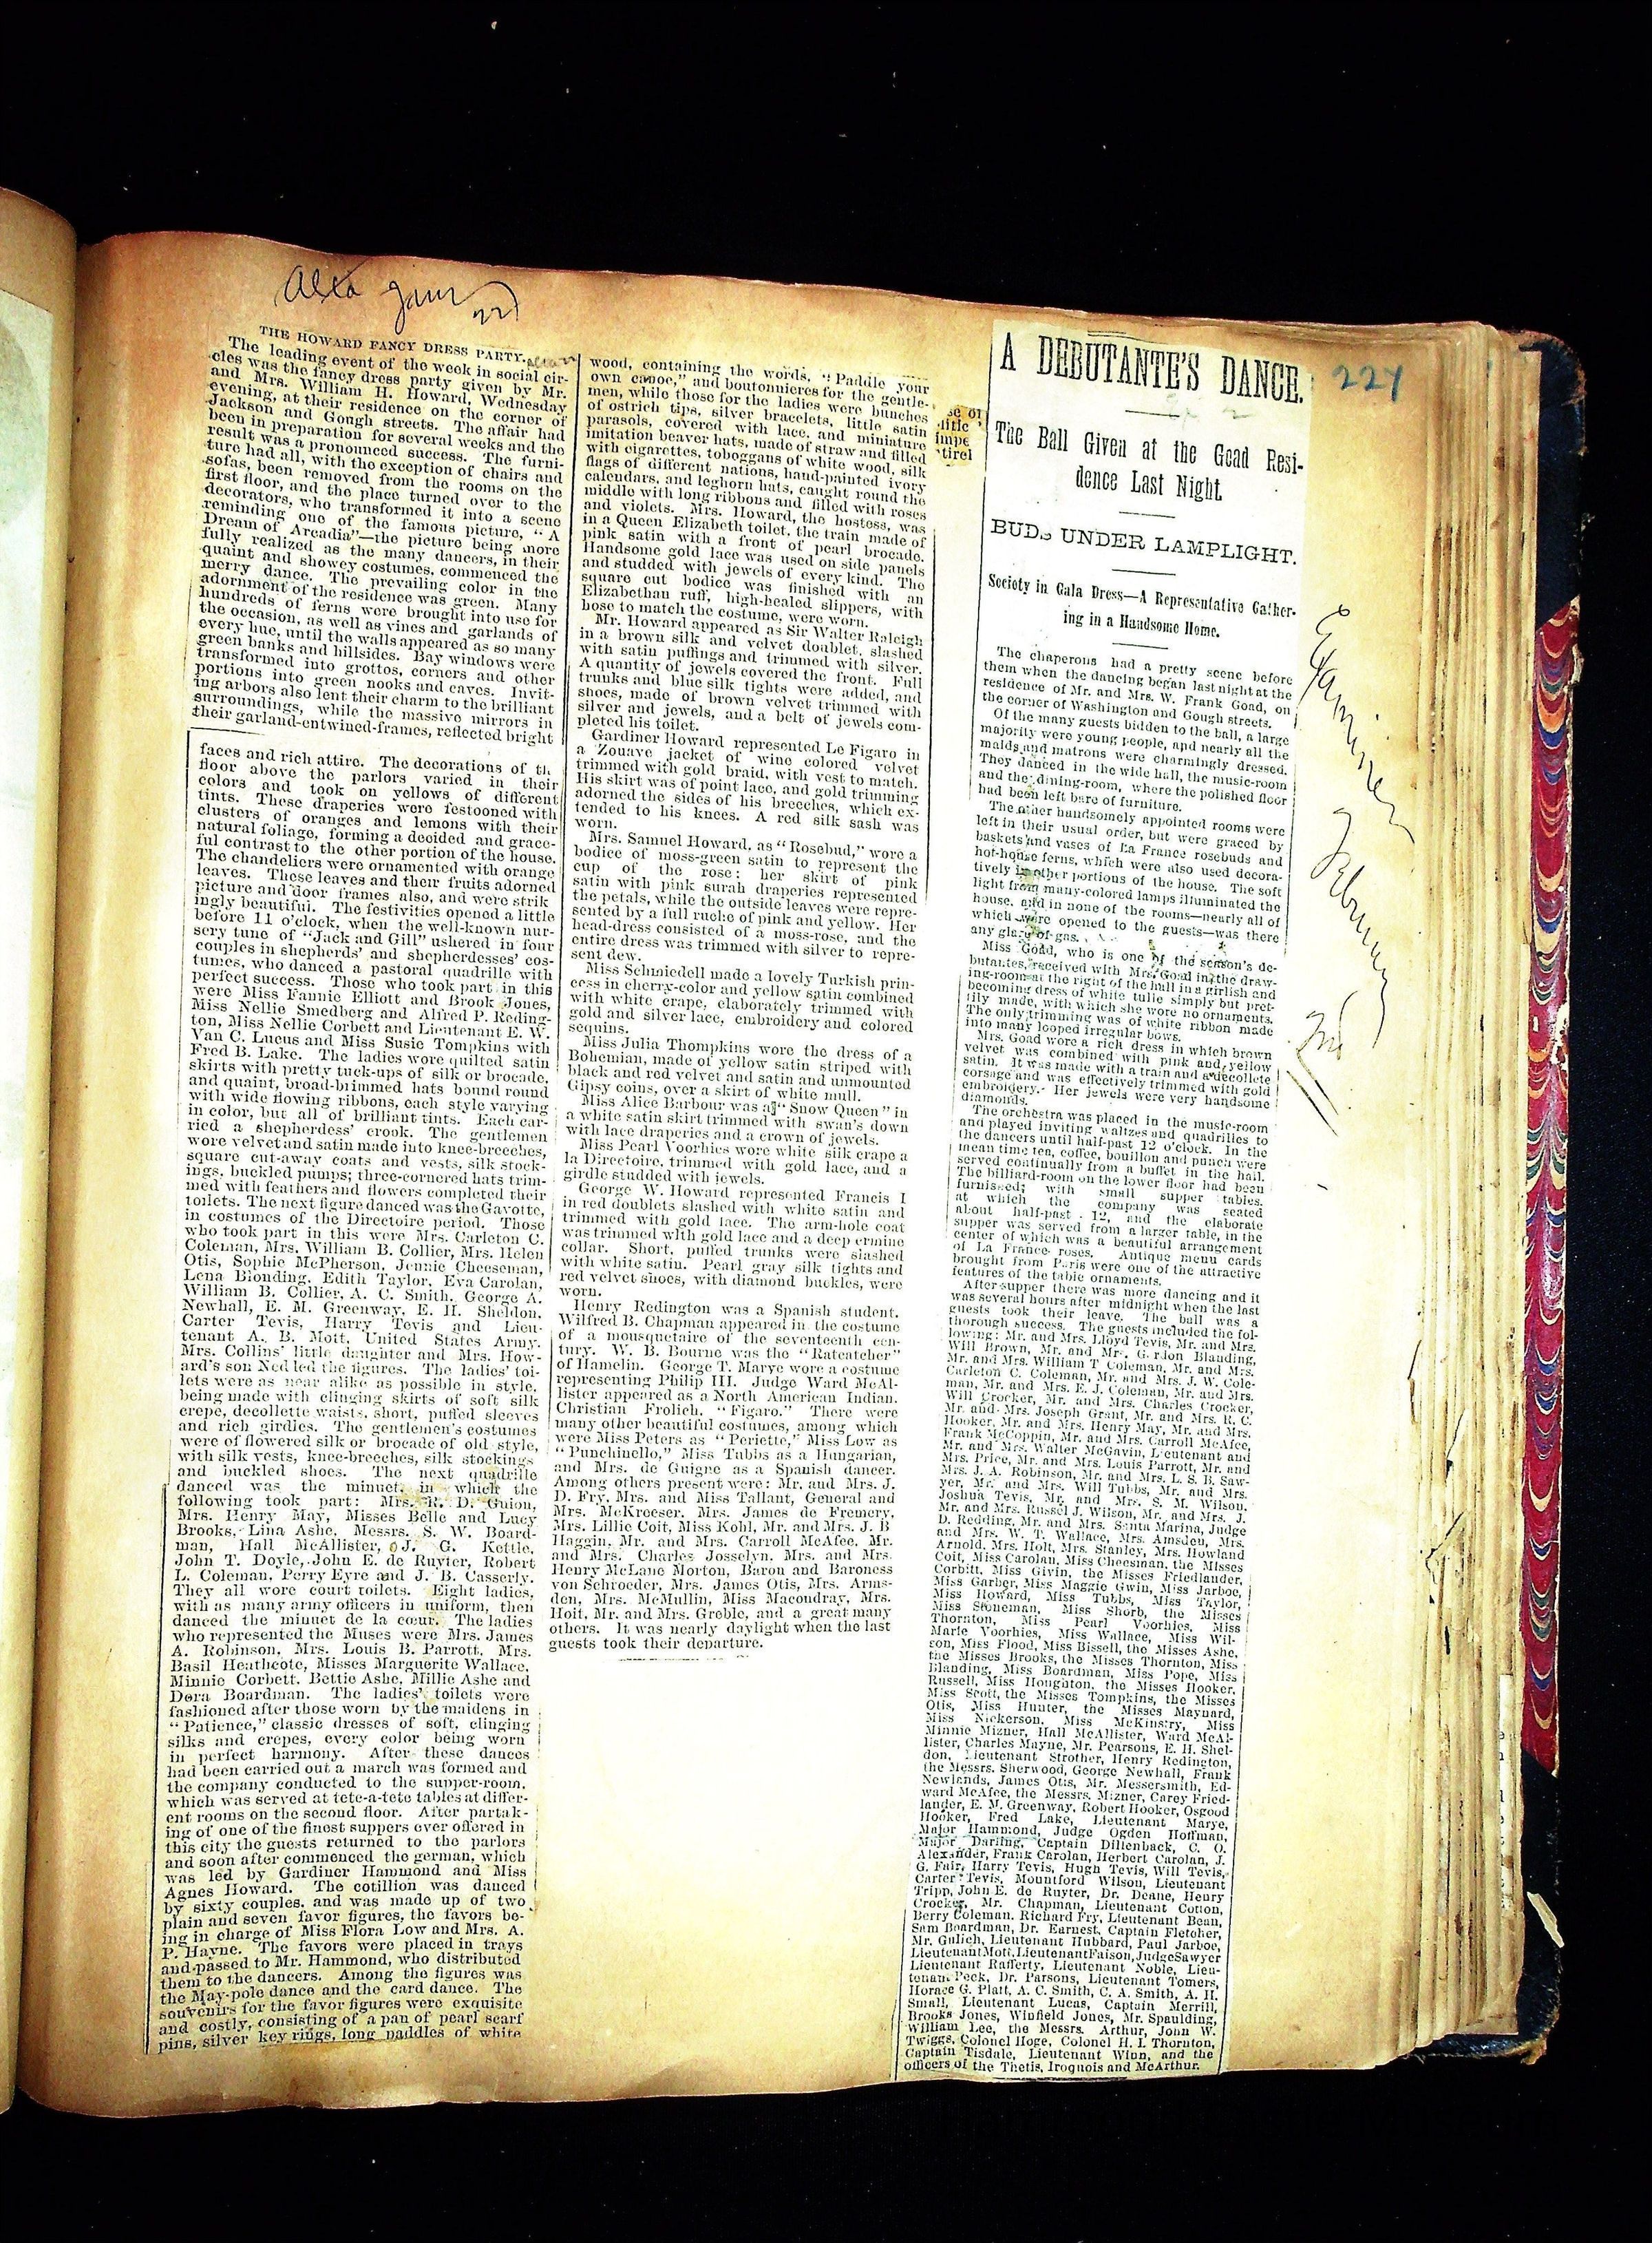 Alta Jan 22
THE HOWARD FANCY DRESS PARTY.
The leading event of the week in social cir-
cles was the fancy dress party given by Mr.
and Mrs. William H. Howard, Wednesday
evening, at their residence on the corner of
Jackson and Gough streets. The affair had
been in preparation for several weeks and the
result was a pronounced success. The furni-
ture had all, with the exception of chairs and
sofas, been removed from the rooms on the
first floor, and the place turned over to the
decorators, who transformed it into a scene
reminding one of the famous picture, "A
Dream of Arcadia"—the picture being more
fully realized as the many dancers, in their
quaint and showey costumes, commenced the
merry dance. The prevailing color in the
adornment of the residence was green. Many
hundreds of ferns were brought into use for
the occasion, as well as vines and garlands of
every hue, until the walls appeared as so many
green banks and hillsides. Bay windows were
transformed into grottos, corners and other
portions into green nooks and caves. Invit-
ing arbors also lent their charm to the brilliant
surroundings, while the massive mirrors in
their garland-entwined-frames, reflected bright
faces and rich attire. The decorations of th
floor above the parlors varied in their
colors and took on yellows of different
tints. These draperies were festooned with
clusters of oranges and lemons with their
natural foliage, forming a decided and grace-
ful contrast to the other portion of the house.
The chandeliers were ornamented with orange
leaves. These leaves and their fruits adorned
picture and door frames also, and were strik
ingly beautiful. The festivities opened a little
before 11 o'clock, when the well-known nur-
sery tune of "Jack and Gill" ushered in four
couples in shepherds' and shepherdesses' cos-
tumes, who danced a pastoral quadrille with
perfect success. Those who took part in this
were Miss Fannie Elliott and Brook Jones,
Miss Nellie Smedberg and Alfred P. Reding-
ton, Miss Nellie Corbett and Lieutenant E. W.
Van C. Lucus and Miss Susie Tompkins with
Fred B. Lake. The ladies wore quilted satin
skirts with pretty tuck-ups of silk or brocade,
and quaint, broad-brimmed hats bound round
with wide flowing ribbons, each style varying
in color, but all of brilliant tints. Each car-
ried a shepherdess' crook. The gentlemen
wore velvet and satin made into knee-breeches,
square cut-away coats and vests, silk stock-
ings, buckled pumps; three-cornered hats trim-
med with feathers and flowers completed their
toilets. The next figure danced was the Gavotte,
in costumes of the Directoire period. Those
who took part in this were Mrs. Carleton C.
Coleman, Mrs. William B. Collier, Mrs. Helen
Otis, Sophie McPherson, Jennie Cheeseman,
Lena Blonding, Edith Taylor, Eva Carolan,
William B. Collier, A. C. Smith, George A.
Newhall, E. M. Greenway, E. H. Sheldon,
Carter Tevis, Harry Tevis and Lieu-
tenant A. B. Mott, United States Army.
Mrs. Collins' little daughter and Mrs. How-
ard's son Ned led the figures. The ladies' toi-
lets were as near alike as possible in style,
being made with clinging skirts of soft silk
crepe, decollette waists, short, puffed sleeves
and rich girdles. The gentlemen's costumes
were of flowered silk or brocade of old style,
with silk vests, knee-breeches, silk stockings
and buckled shoes. The next quadrille
danced was the minuet, in which the
following took part: Mrs. R. D. Guion,
Mrs. Henry May, Misses Belle and Lucy
Brooks, Lina Ashe, Messrs. S. W. Board-
man, Hall McAllister, J. G. Kettle,
John T. Doyle, John E. de Ruyter, Robert
L. Coleman, Perry Eyre and J. B. Casserly.
They all wore court toilets. Eight ladies,
with as many army officers in uniform, then
danced the minuet de la cœur. The ladies
who represented the Muses were Mrs. James
A. Robinson, Mrs. Louis B. Parrott, Mrs.
Basil Heathcote, Misses Marguerite Wallace,
Minnie Corbett, Bettie Ashe, Millie Ashe and
Dora Boardman. The ladies' toilets were
fashioned after those worn by the maidens in
"Patience," classic dresses of soft, clinging
silks and crepes, every color being worn
in perfect harmony. After these dances
had been carried out a march was formed and
the company conducted to the supper-room,
which was served at tete-a-tete tables at differ-
ent rooms on the second floor. After partak-
ing of one of the finest suppers ever offered in
this city the guests returned to the parlors
and soon after commenced the german, which
was led by Gardiner Hammond and Miss
Agnes Howard. The cotillion was danced
by sixty couples, and was made up of two
plain and seven favor figures, the favors be-
ing in charge of Miss Flora Low and Mrs. A.
P. Hayne. The favors were placed in trays
and passed to Mr. Hammond, who distributed
them to the dancers. Among the figures was
the May-pole dance and the card dance. The
souvenirs for the favor figures were exquisite
and costly, consisting of a pan of pearl scarf
pins, silver key rings, long paddles of white
wood, containing the words, "Paddle your
own canoe," and boutonnieres for the gentle-
men, while those for the ladies were bunches
of ostrich tips, silver bracelets, little satin
parasols, covered with lace, and miniature
imitation beaver hats, made of straw and filled
with cigarettes, toboggans of white wood, silk
flags of different nations, hand-painted ivory
calendars, and leghorn hats, caught round the
middle with long ribbons and filled with roses
and violets. Mrs. Howard, the hostess, was
in a Queen Elizabeth toilet, the train made of
pink satin with a front of pearl brocade.
Handsome gold lace was used on side panels
and studded with jewels of every kind. The
square cut bodice was finished with an
Elizabethan ruff, high-healed slippers, with
hose to match the costume, were worn.
Mr. Howard appeared as Sir Walter Raleigh
in a brown silk and velvet doublet, slashed
with satin puffings and trimmed with silver.
A quantity of jewels covered the front. Full
trunks and blue silk tights were added, and
shoes, made of brown velvet trimmed with
silver and jewels, and a belt of jewels com-
pleted his toilet.
Gardiner Howard represented Le Figaro in
a Zouave jacket of wine colored velvet
trimmed with gold braid, with vest to match.
His skirt was of point lace, and gold trimming
adorned the sides of his breeches, which ex-
tended to his knees. A red silk sash was
worn.
Mrs. Samuel Howard, as "Rosebud," wore a
bodice of moss-green satin to represent the
cup of the rose: her skirt of pink
satin with pink surah draperies represented
the petals, while the outside leaves were repre-
sented by a full ruche of pink and yellow. Her
head-dress consisted of a moss-rose, and the
entire dress was trimmed with silver to repre-
sent dew.
Miss Schmiedell made a lovely Turkish prin-
cess in cherry-color and yellow satin combined
with white crape, elaborately trimmed with
gold and silver lace, embroidery and colored
sequins.
Miss Julia Thompkins wore the dress of a
Bohemian, made of yellow satin striped with
black and red velvet and satin and unmounted
Gipsy coins, over a skirt of white mull.
Miss Alice Barbour was a "Snow Queen" in
a white satin skirt trimmed with swan's down
with lace draperies and a crown of jewels.
Miss Pearl Voorhies wore white silk crape a
la Directoire, trimmed with gold lace, and a
girdle studded with jewels.
George W. Howard represented Francis I
in red doublets slashed with white satin and
trimmed with gold lace. The arm-hole coat
was trimmed with gold lace and a deep ermine
collar. Short, puffed trunks were slashed
with white satin. Pearl gray silk tights and
red velvet shoes, with diamond buckles, were
worn.
Henry Redington was a Spanish student.
Wilfred B. Chapman appeared in the costume
of a mousquetaire of the seventeenth cen-
tury. W. B. Bourne was the "Ratcatcher"
of Hamelin. George T. Marye wore a costume
representing Philip III. Judge Ward McAl-
lister appeared as a North American Indian.
Christian Frolich, "Figaro." There were
many other beautiful costumes, among which
were Miss Peters as "Periette," Miss Low as
"Punchinello," Miss Tubbs as a Hungarian,
and Mrs. de Guigne as a Spanish dancer.
Among others present were: Mr. and Mrs. J.
D. Fry, Mrs. and Miss Tallant, General and
Mrs. McKroeser, Mrs. James de Fremery,
Mrs. Lillie Coit, Miss Kohl, Mr. and Mrs. J. B
Haggin, Mr. and Mrs. Carroll McAfee, Mr.
and Mrs. Charles Josselyn, Mrs. and Mrs.
Henry McLane Morton, Baron and Baroness
von Schroeder, Mrs. James Otis, Mrs. Arms-
den, Mrs. McMullin, Miss Macondray, Mrs.
Hoit, Mr. and Mrs. Greble, and a great many
others. It was nearly daylight when the last
guests took their departure.
se of
litic
impe
tirel
A DEBUTANTE'S DANCE.
The Ball Given at the Goad Resi-
dence Last Night
BUDS UNDER LAMPLIGHT.
Society in Gala Dress—A Representative Gather-
ing in a Handsome Home.
The chaperons had a pretty scene before
them when the dancing began last night at the
residence of Mr. and Mrs. W. Frank Goad, on
the corner of Washington and Gough streets.
Of the many guests bidden to the ball, a large
majority were young people, and nearly all the
maids and matrons were charmingly dressed.
They danced in the wide hall, the music-room
and the dining-room, where the polished floor
had been left bare of furniture.
The other handsomely appointed rooms were
left in their usual order, but were graced by
baskets and vases of La France rosebuds and
hot-house ferns, which were also used decora-
tively in other portions of the house. The soft
light from many-colored lamps illuminated the
house, and in none of the rooms—nearly all of
which were opened to the guests—was there
any glare of gas.
Miss Goad, who is one of the season's de-
butantes, received with Mrs. Goad in the draw-
ing-room at the right of the hall in a girlish and
becoming dress of white tulle simply but pret-
tily made, with which she wore no ornaments.
The only trimming was of white ribbon made
into many looped irregular bows.
Mrs. Goad wore a rich dress in which brown
velvet was combined with pink and yellow
satin. It was made with a train and a decollete
corsage and was effectively trimmed with gold
embroidery. Her jewels were very handsome
diamonds.
The orchestra was placed in the music-room
and played inviting waltzes and quadrilles to
the dancers until half-past 12 o'clock. In the
mean time tea, coffee, bouillon and punch were
served continually from a buffet in the hall.
The billiard-room on the lower floor had been
furnished; with small supper tables,
at which the company was seated
about half-past 12, and the elaborate
supper was served from a larger table, in the
center of which was a beautiful arrangement
of La France roses. Antique menu cards
brought from Paris were one of the attractive
features of the table ornaments.
After supper there was more dancing and it
was several hours after midnight when the last
guests took their leave. The ball was a
thorough success. The guests included the fol-
lowing: Mr. and Mrs. Lloyd Tevis, Mr. and Mrs.
Will Brown, Mr. and Mrs. Gordon Blanding,
Mr. and Mrs. William T Coleman, Mr. and Mrs.
Carleton C. Coleman, Mr. and Mrs. J. W. Cole-
man, Mr. and Mrs. E. J. Coleman, Mr. and Mrs.
Will Crocker, Mr. and Mrs. Charles Crocker,
Mr. and Mrs. Joseph Grant, Mr. and Mrs. R. C.
Hooker, Mr. and Mrs. Henry May, Mr. and Mrs.
Frank McCoppin, Mr. and Mrs. Carroll McAfee,
Mr. and Mrs. Walter McGavin, Lieutenant and
Mrs. Price, Mr. and Mrs. Louis Parrott, Mr. and
Mrs. J. A. Robinson, Mr. and Mrs. L. S. B. Saw-
yer, Mr. and Mrs. Will Tubbs, Mr. and Mrs.
Joshua Tevis, Mr. and Mrs. S. M. Wilson,
Mr. and Mrs. Russel J. Wilson, Mr. and Mrs. J.
D. Redding, Mr. and Mrs. Santa Marina, Judge
and Mrs. W. T. Wallace, Mrs. Amsden, Mrs.
Arnold, Mrs. Holt, Mrs. Stanley, Mrs. Howland
Coit, Miss Carolan, Miss Cheesman, the Misses
Corbitt, Miss Givin, the Misses Friedlander,
Miss Garber, Miss Maggie Gwin, Miss Jarboe,
Miss Howard, Miss Tubbs, Miss Taylor,
Miss Stoneman, Miss Shorb, the Misses
Thornton, Miss Pearl Voorhies, Miss
Marie Voorhies, Miss Wallace, Miss Wil-
son, Miss Flood, Miss Bissell, the Misses Ashe,
the Misses Brooks, the Misses Thornton, Miss
Blanding, Miss Boardman, Miss Pope, Miss
Russell, Miss Houghton, the Misses Hooker,
Miss Scott, the Misses Tompkins, the Misses
Otis, Miss Hunter, the Misses Maynard,
Miss Nickerson, Miss McKinstry, Miss
Minnie Mizner, Hall McAllister, Ward McAl-
lister, Charles Mayne, Mr. Pearsons, E. H. Shel-
don, Lieutenant Strother, Henry Redington,
the Messrs. Sherwood, George Newhall, Frank
Newlands, James Otis, Mr. Messersmith, Ed-
ward McAfee, the Messrs. Mizner, Carey Fried-
lander, E. M. Greenway, Robert Hooker, Osgood
Hooker, Fred Lake, Lieutenant Marye,
Major Hammond, Judge Ogden Hoffman,
Major Darling, Captain Dillenback, C. O.
Alexander, Frank Carolan, Herbert Carolan, J.
G. Fair, Harry Tevis, Hugh Tevis, Will Tevis,
Carter Tevis, Mountford Wilson, Lieutenant
Tripp, John E. de Ruyter, Dr. Deane, Henry
Crocker, Mr. Chapman, Lieutenant Cotton,
Berry Coleman, Richard Fry, Lieutenant Bean,
Sam Boardman, Dr. Earnest, Captain Fletcher,
Mr. Gulich, Lieutenant Hubbard, Paul Jarboe,
Lieutenant Mott, Lieutenant Faison, Judge Sawyer
Lieutenant Rafferty, Lieutenant Noble, Lieu-
tenant Peck, Dr. Parsons, Lieutenant Tomers,
Horace G. Platt, A. C. Smith, C. A. Smith, A. H.
Small, Lieutenant Lucas, Captain Merrill,
Brooks Jones, Winfield Jones, Mr. Spaulding,
William Lee, the Messrs. Arthur, John W.
Twiggs, Colonel Hoge, Colonel H. I. Thornton,
Captain Tisdale, Lieutenant Winn, and the
officers of the Thetis, Iroquois and McArthur.
227
Examiner
February